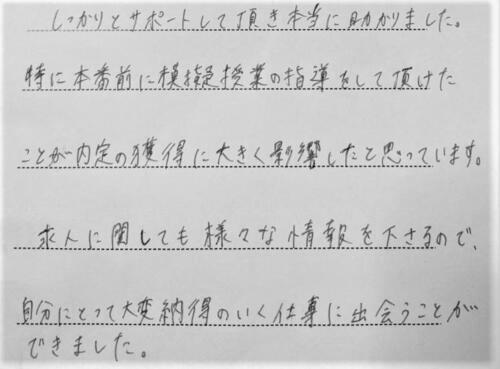 しっかりとサポートして頂き本当に助かりました。
特に本番前に模擬授業の指導をして頂けた
ことが内定の獲得に大きく影響したと思っています。
求人に関しても様々な情報を下さるので、
自分にとって大変納得のいく仕事に出会うことが
できました。